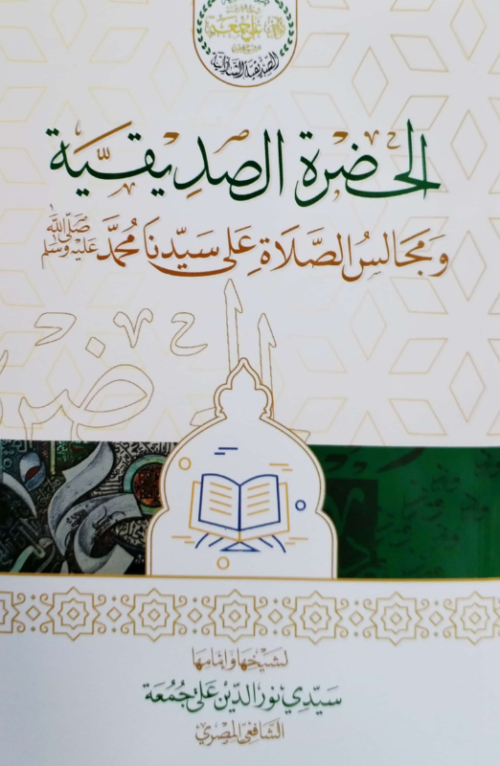 علي جمعة
الصديقية الشاذلية
الحضرة الصديقية
ومجالس الصلاة على سيدنا محمد صلى الله عليه وسلم
لشيخها وإمامها
سيدي نور الدين علي جمعة
الشافعي المصري